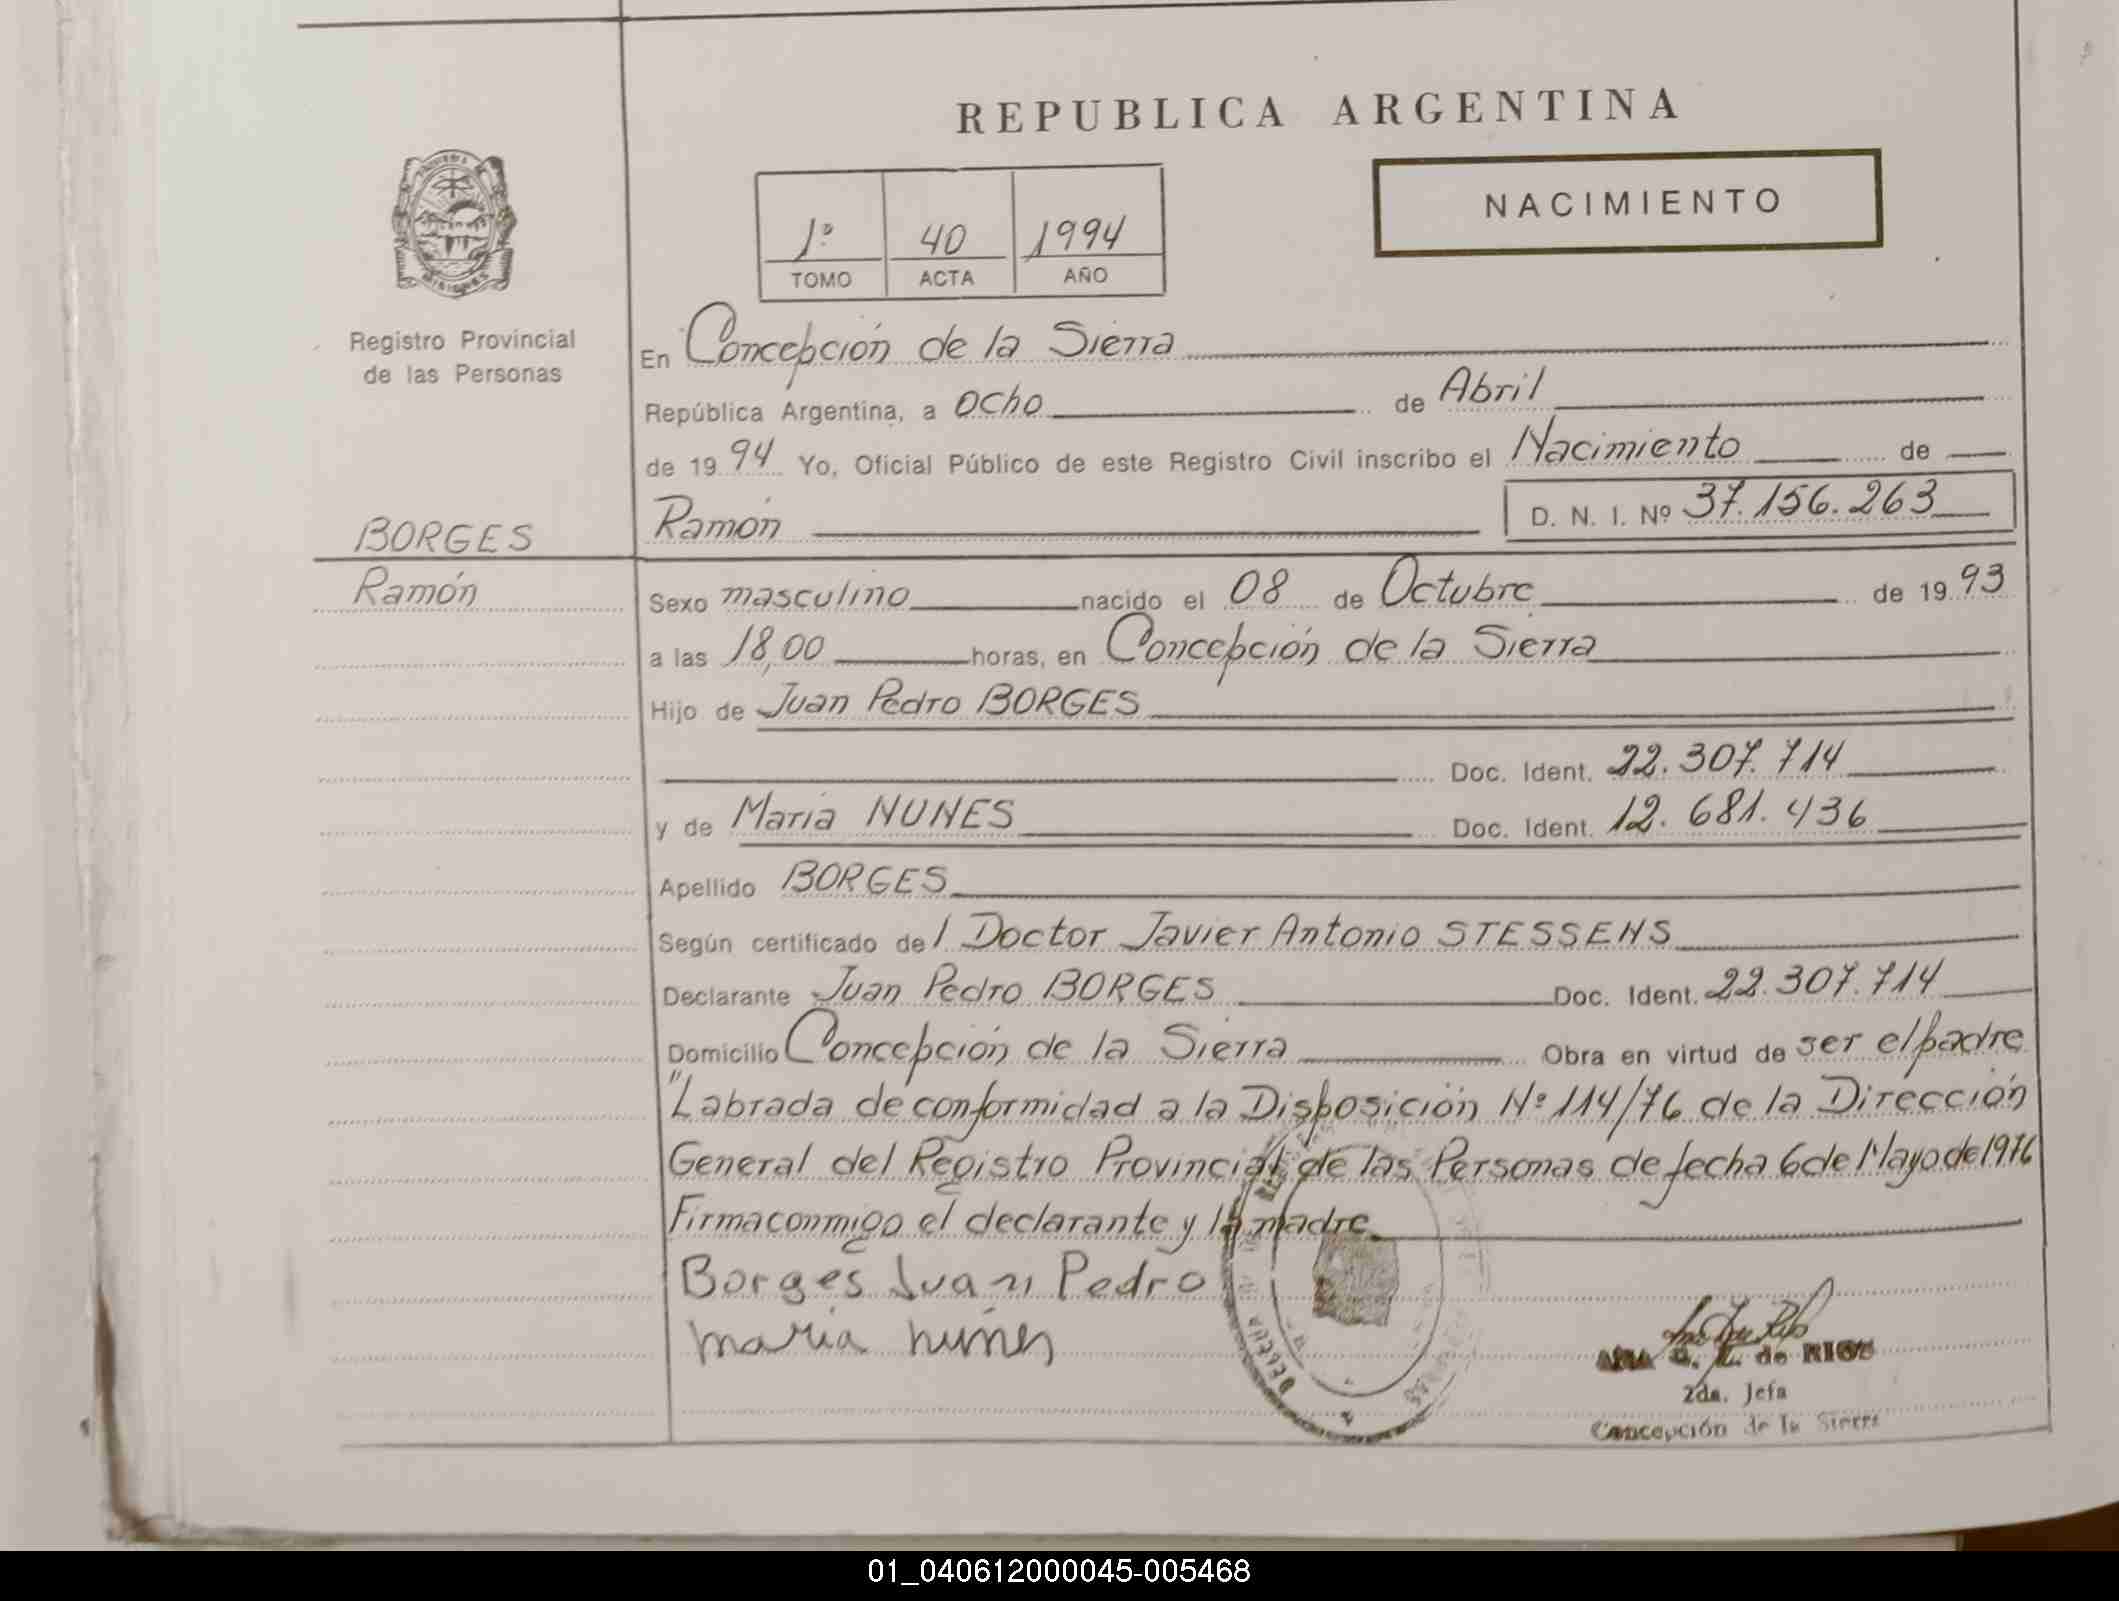 REPUBLICA ARGENTINA
NACIMIENTO
1º 40 1994
TOMO ACTA AÑO
Registro Provincial
de las Personas
En Concepción de la Sierra
República Argentina, a ocho de Abril
de 19 94 Yo, Oficial Público de este Registro Civil inscribo el Nacimiento de
Ramón D. N. I. Nº 37.156.263
BORGES
Ramón
Sexo masculino nacido el 08 de Octubre de 19 93
a las 18,00 horas, en Concepción de la Sierra
Hijo de Juan Pedro BORGES
Doc. Ident. 22.307.714
y de María NUNES Doc. Ident. 12.681.436
Apellido BORGES
Según certificado del Doctor Javier Antonio STESSENS
Declarante Juan Pedro BORGES Doc. Ident. 22.307.714
Domicilio Concepción de la Sierra Obra en virtud de ser el padre
"Labrada de conformidad a la Disposición Nº 114/76 de la Dirección
General del Registro Provincial de las Personas de fecha 6 de Mayo de 1976
Firma conmigo el declarante y la madre
Borges Juan Pedro
maria nunes
de RIOS
2da. Jefa
Concepción de la Sierra
01_040612000045-005468